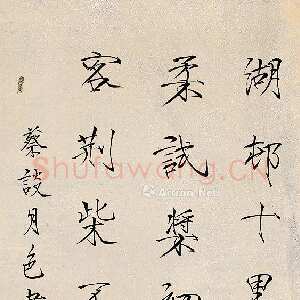 湖邨十里
柔試槳
客荆柴不
蔡談月色
Shufawang.CN
Artron.Net